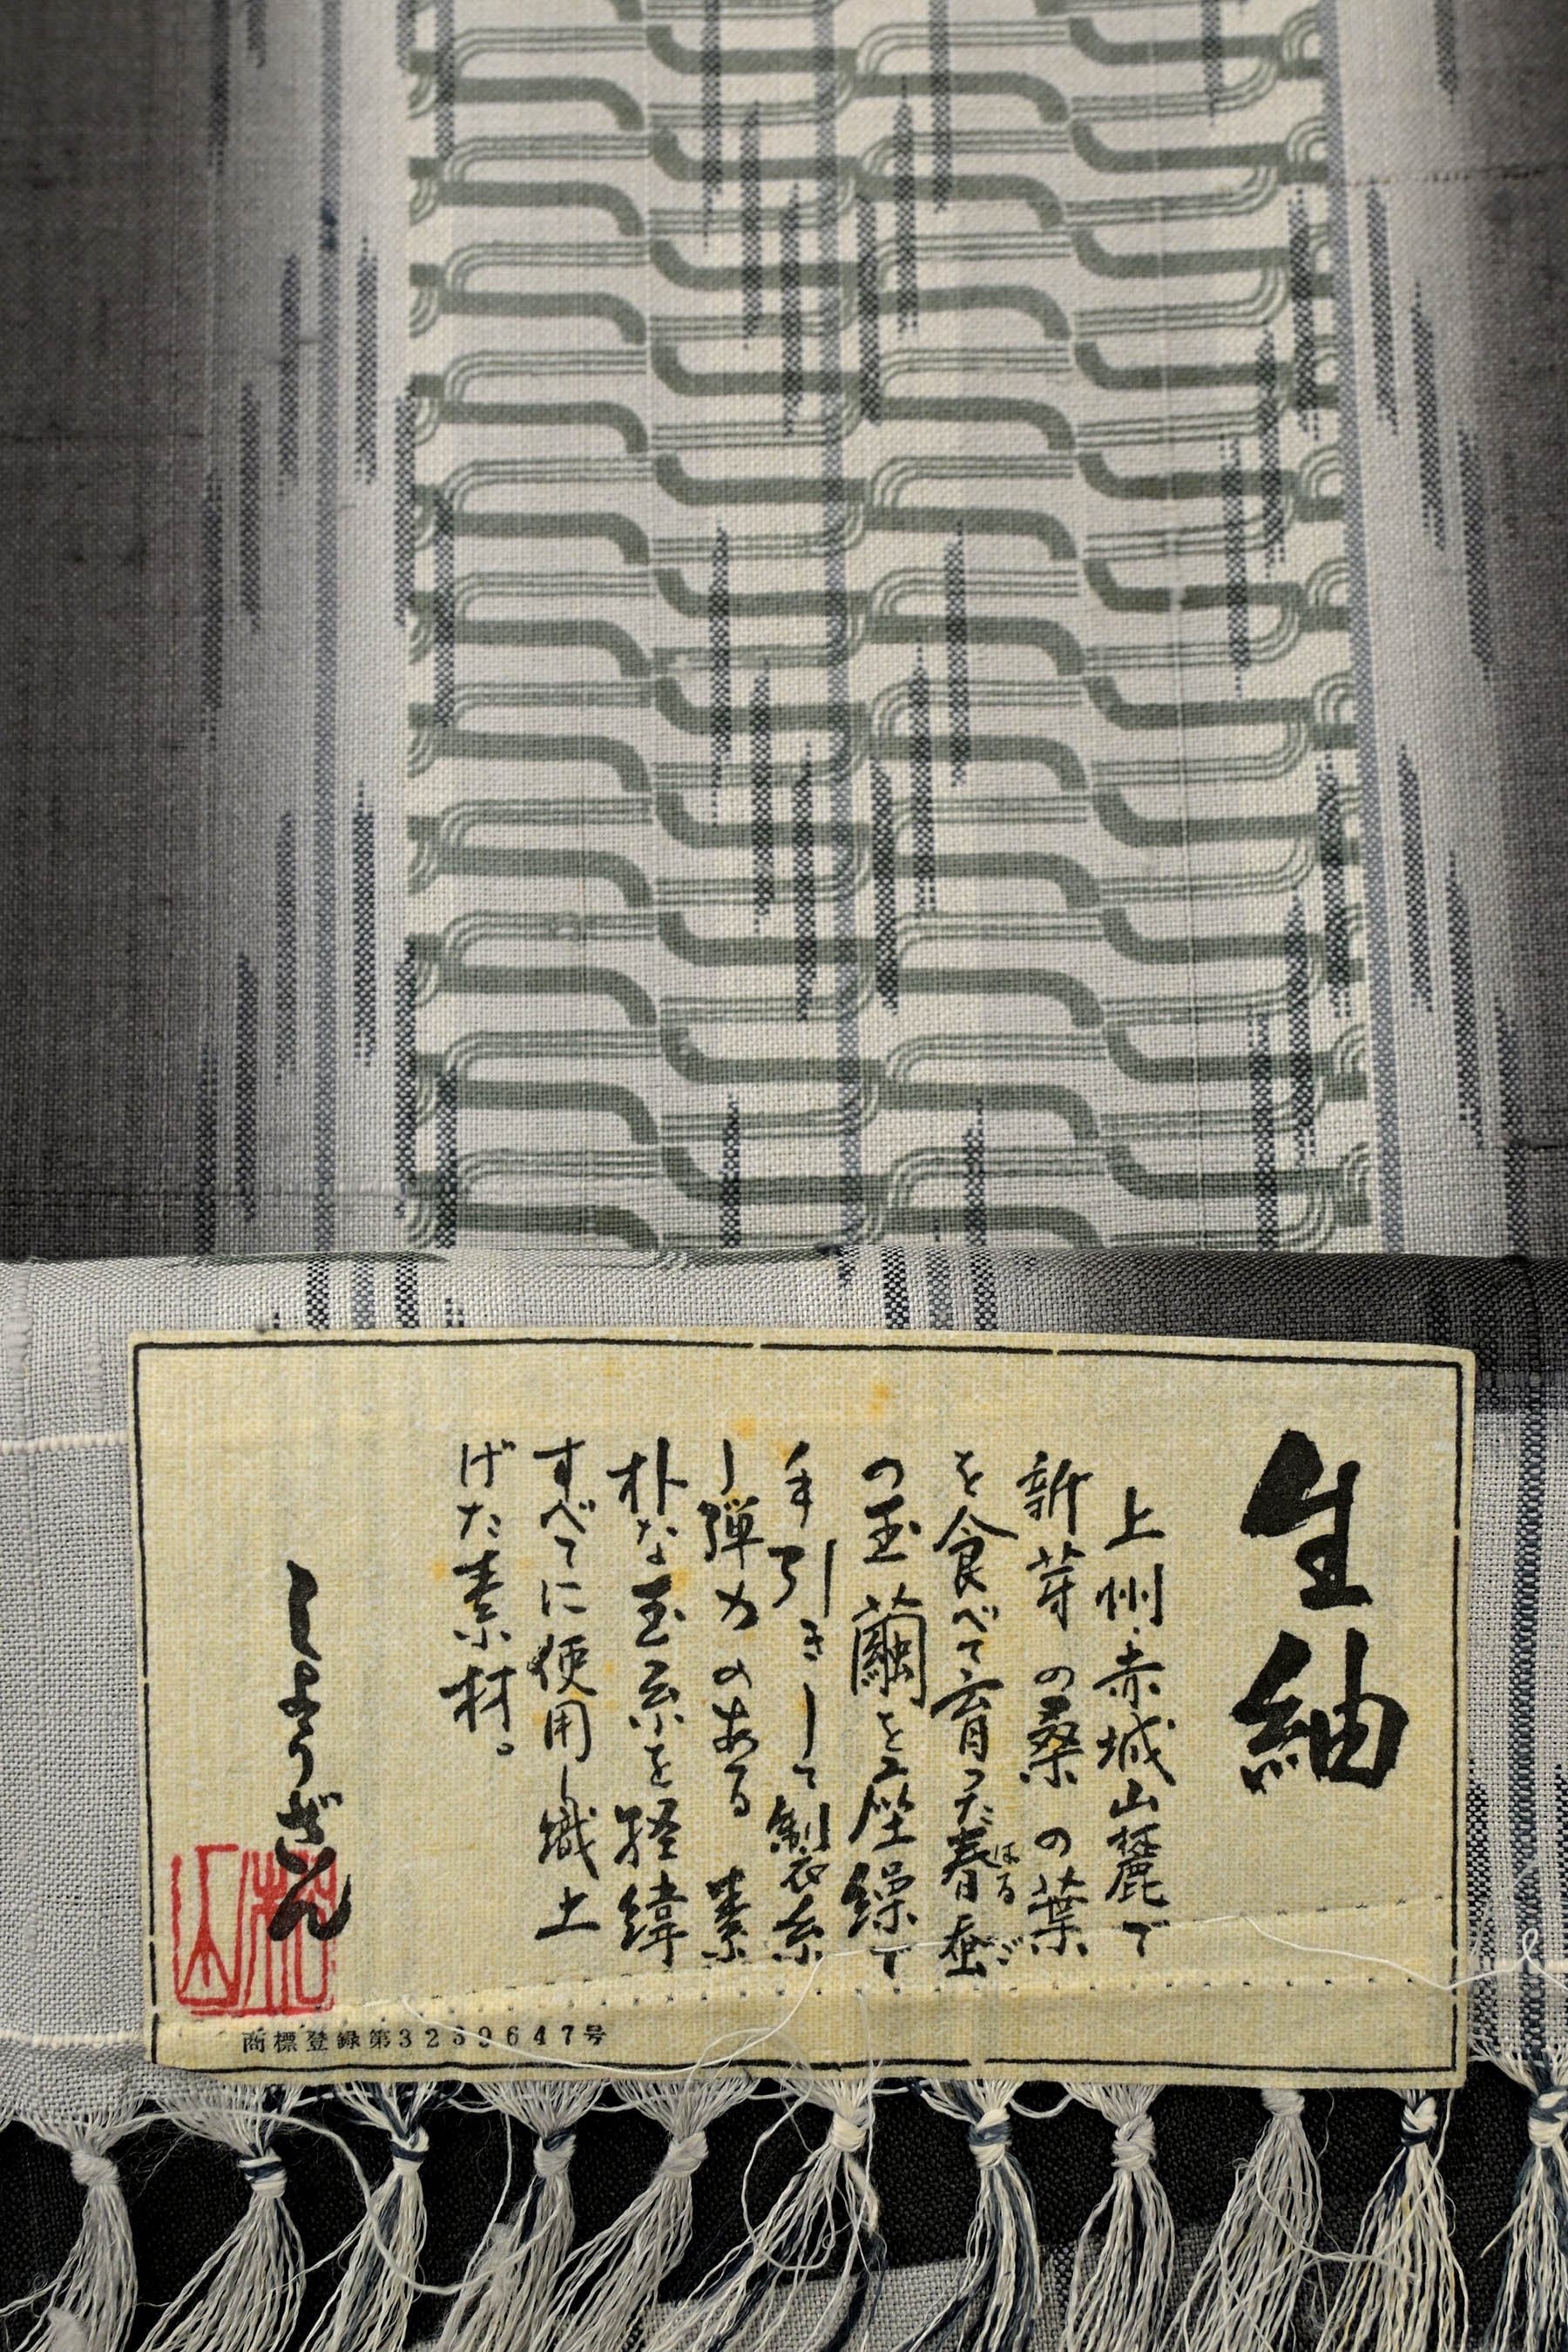 生紬
上州・赤城山麓で
新芽の桑の葉
を食べて育った春蚕
はるご
の玉繭を座繰で
手引きして製糸
し弾力のある素
朴な玉糸を経緯
すべてに使用し織上
げた素材。
しょうざん
松山
商標登録第3269647号